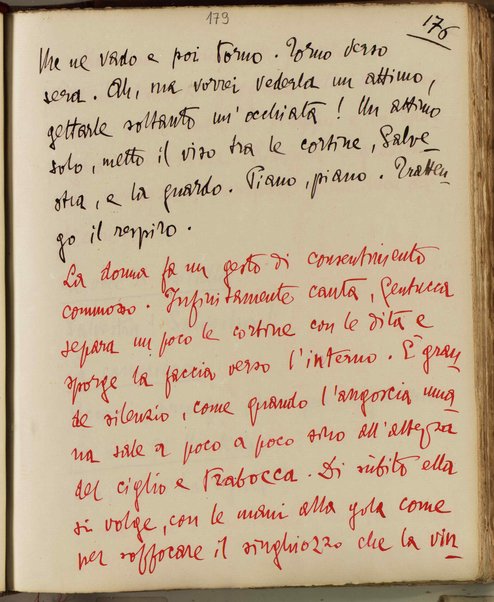 179
176
Me ne vado e poi torno. Torno verso
sera. Ah, ma vorrei vederla un attimo,
gettarle soltanto un'occhiata! Un attimo
solo, metto il viso tra le cortine, Salve-
stra, e la guardo. Piano, piano. Tratten-
go il respiro.
La donna fa un gesto di consentimento
commosso. Infinitamente cauta, Gentucca
separa un poco le cortine con le dita e
sporge la faccia verso l'interno. È gran-
de silenzio, come quando l'angoscia uma-
na sale a poco a poco sino all'altezza
del ciglio e trabocca. Di sùbito ella
si volge, con le mani alla gola come
per soffocare il singhiozzo che la vin-